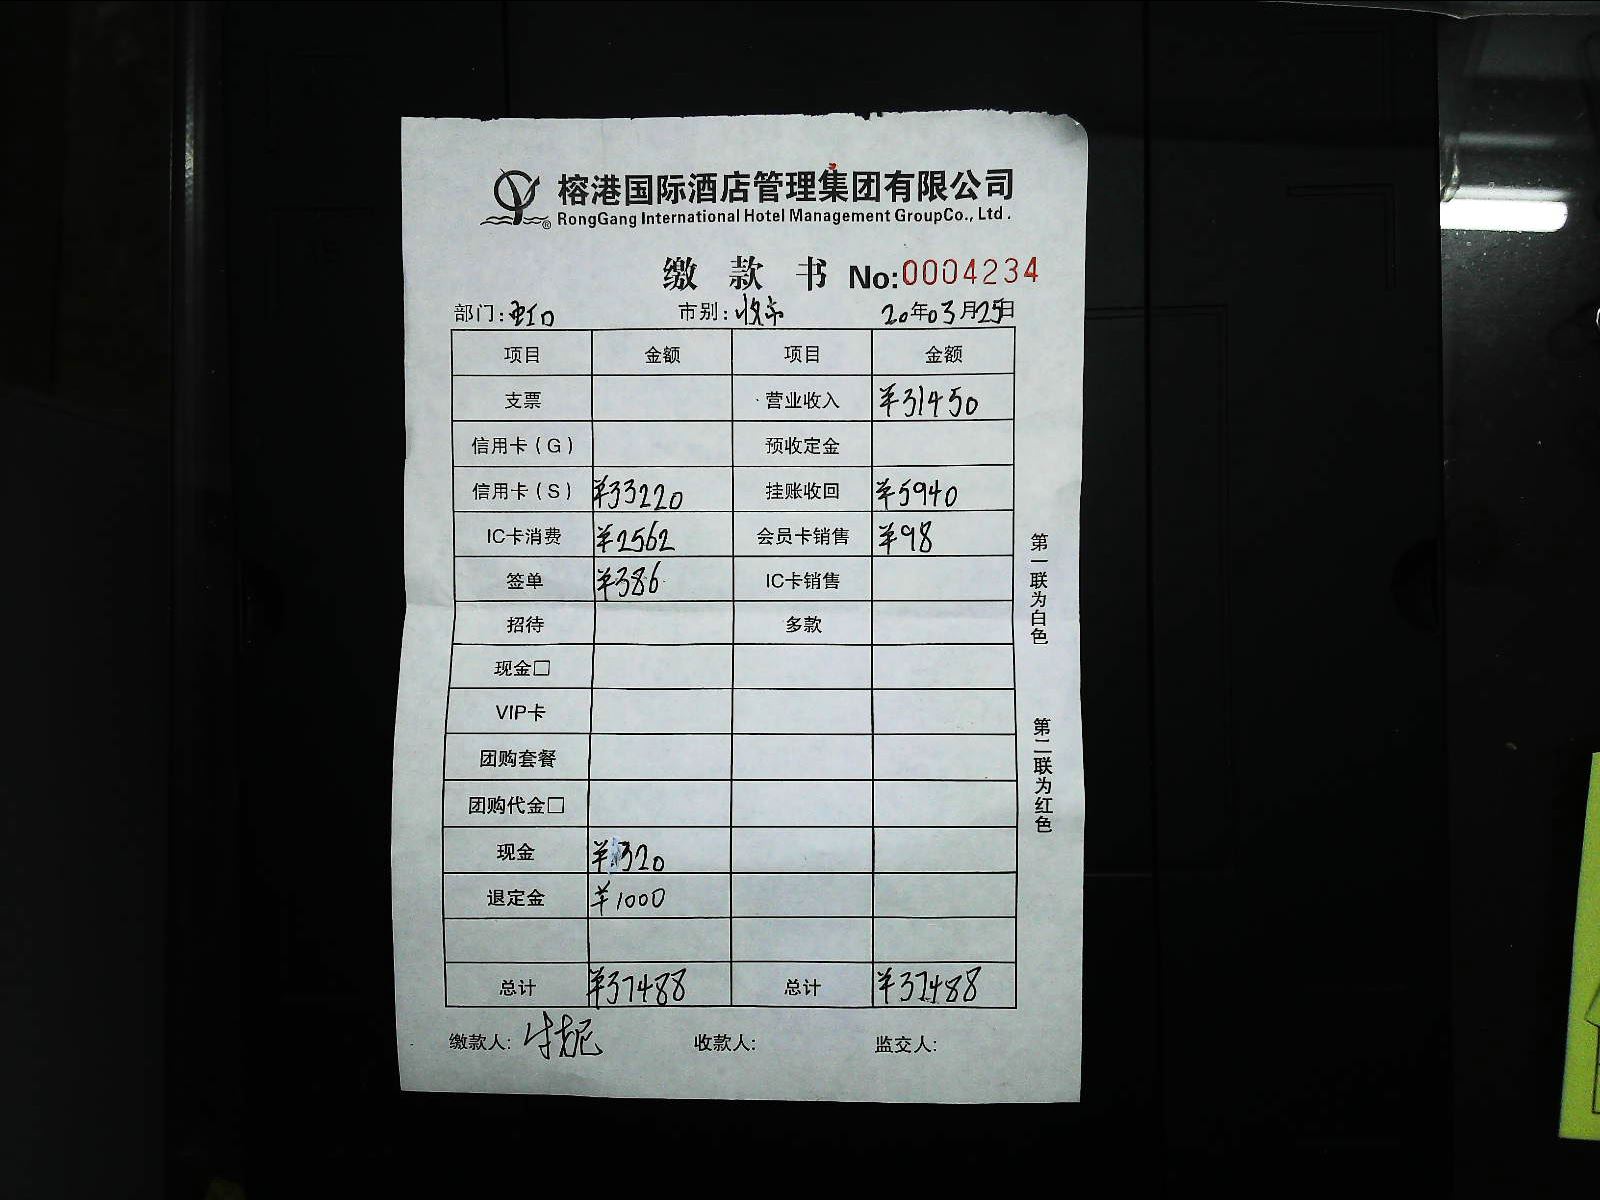 榕港国际酒店管理集团有限公司
RongGang International Hotel Management GroupCo., Ltd.
缴款书 No:0004234
部门: 市别:收市 20年03月25日
项目 金额 项目 金额
支票 营业收入 ¥31450
信用卡(G) 预收定金
信用卡(S) ¥33220 挂账收回 ¥5940
IC卡消费 ¥2562 会员卡销售 ¥98
签单 ¥386 IC卡销售
招待 多款
现金□
VIP卡
团购套餐
团购代金□
现金 ¥320
退定金 ¥1000
总计 ¥37488 总计 ¥37488
缴款人: 收款人: 监交人:
第一联为白色
第二联为红色